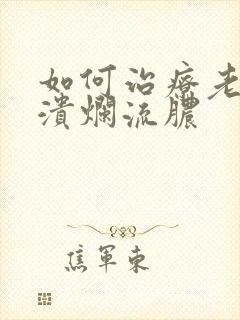 如何治疗老
溃烂流脓
焦军东